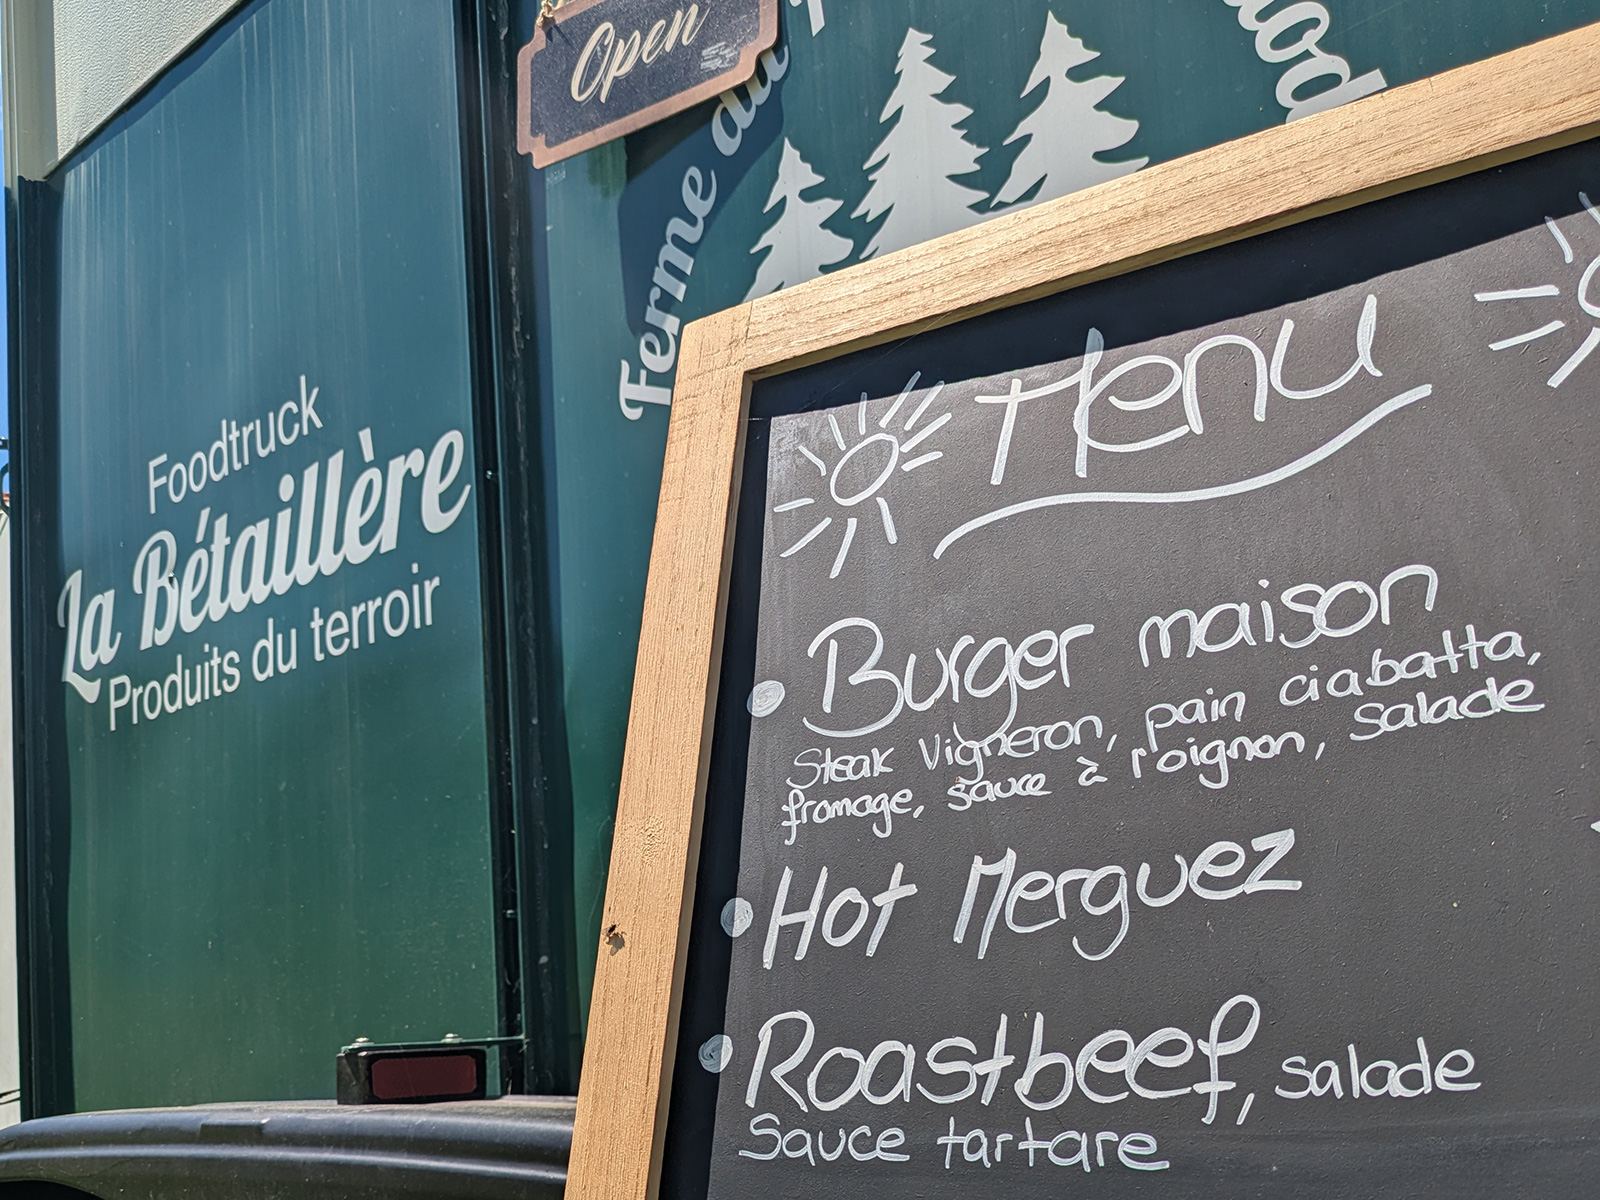 Open
Ferme du
Foodtruck
La Bétaillère
Produits du terroir
Menu
Burger maison
Steak Vigneron, pain ciabatta,
fromage, sauce à l'oignon, salade
Hot Merguez
Roastbeef, salade
Sauce tartare